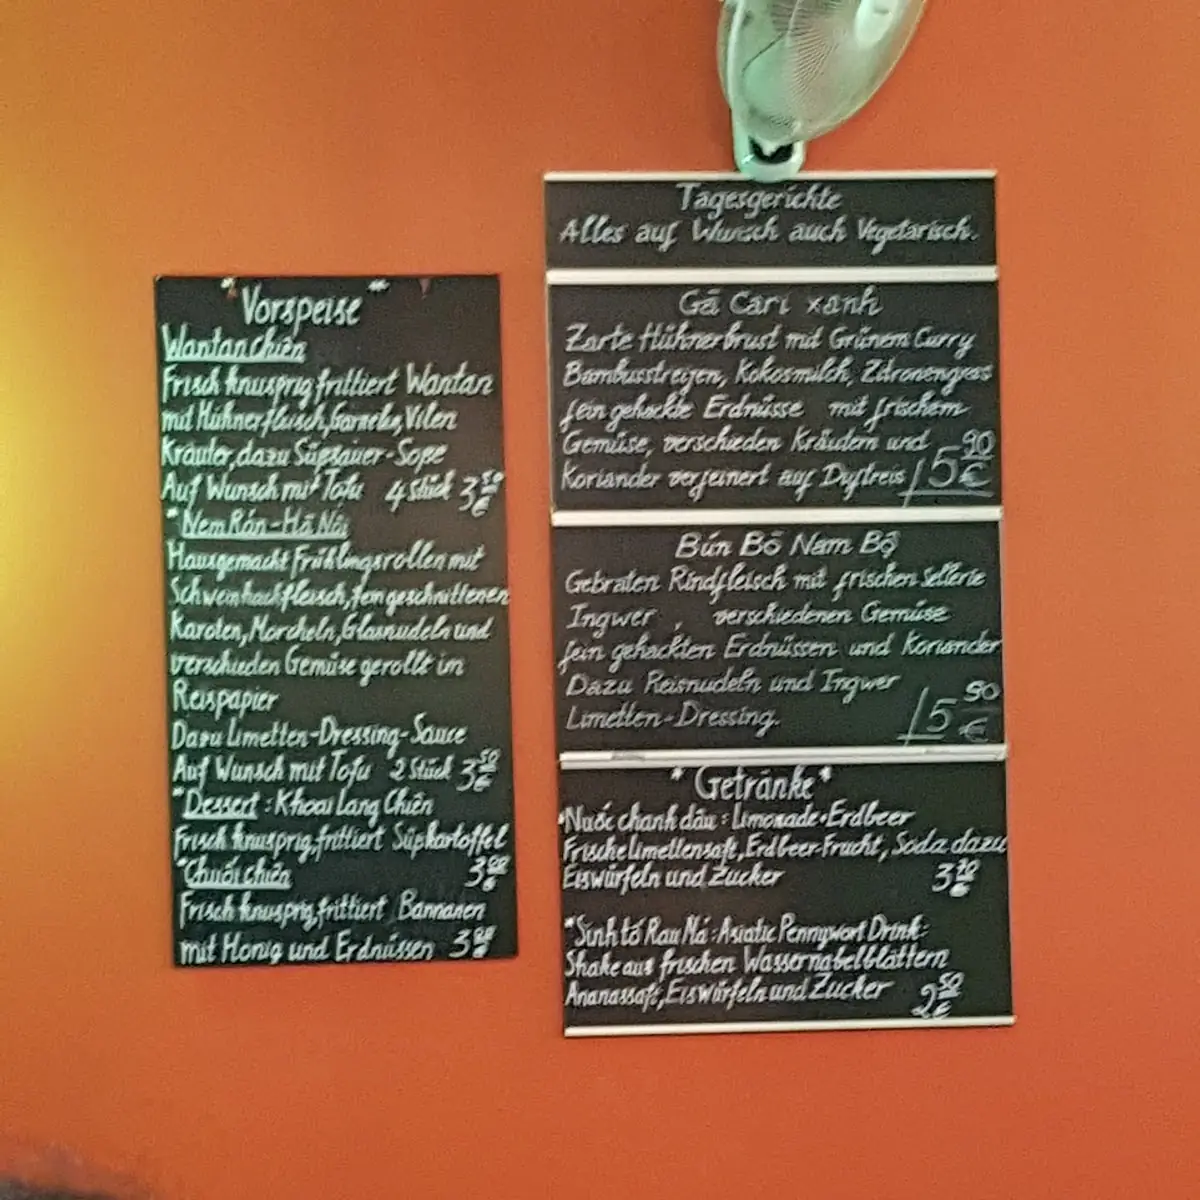 "Vorspeise"
Wantan chiên
Frisch knusprig frittiert Wantan
mit Hühnerfleisch, Garnelen, Vilen
Kräuter, dazu Süßsauer-Soße
Auf Wunsch mit Tofu 4 Stück 3 50 €
"Nem Rán-Hà Nội
Hausgemacht Frühlingsrollen mit
Schweinhackfleisch, fein geschnittenen
Karoten, Morcheln, Glasnudeln und
verschieden Gemüse gerollt im
Reispapier
Dazu Limetten-Dressing-Sauce
Auf Wunsch mit Tofu 2 Stück 3 50 €
"Dessert: Khoai Lang Chiên
Frisch knusprig, frittiert Süßkartoffel
3 €
"Chuối chiên
Frisch knusprig, frittiert Bannanen
mit Honig und Erdnüssen 3 €
Tagesgerichte
Alles auf Wunsch auch Vegetarisch.
Gà Cari xanh
Zarte Hühnerbrust mit Grünem Curry
Bambusstreifen, Kokosmilch, Zitronengras
fein gehackte Erdnüsse mit frischem
Gemüse, verschieden Kräutern und
Koriander verfeinert auf Duftreis 5 90 €
Bún Bò Nam Bộ
Gebraten Rindfleisch mit frischen Sellerie
Ingwer, verschiedenen Gemüse
fein gehackten Erdnüssen und Koriander
Dazu Reisnudeln und Ingwer
Limetten-Dressing. 5 90 €
"Getränke"
*Nước chanh dâu: Limonade-Erdbeer
Frische Limettensaft, Erdbeer-Frucht, Soda dazu
Eiswürfeln und Zucker 3 €
"Sinh tố Rau Má: Asiatic Pennywort Drink:
Shake aus frischen Wassernabelblättern
Ananassaft, Eiswürfeln und Zucker 2 50 €